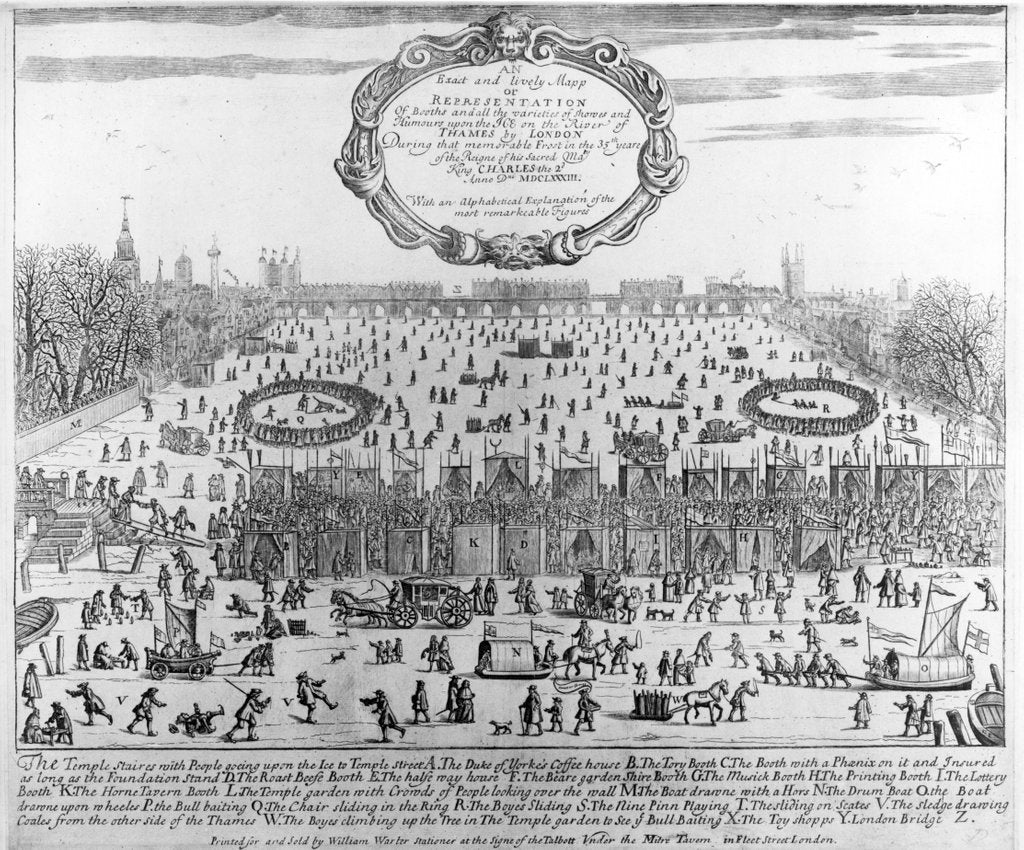 AN
Exact and lively Mapp
or
REPRESENTATION
Of Booths and all the varieties of Showes and
Humours upon the ICE on the River of
THAMES by LONDON
During that memorable Frost in the 35th yeare
of the Reigne of his Sacred Maty
King CHARLES the 2d
Anno Dni MDCLXXXIII.
With an Alphabetical Explanation of the
most remarkeable Figures
Z
M
Q
R
E
L
F
G
B
C
K
D
I
H
T
P
S
N
O
V
V
W
The Temple Staires with People goeing upon the Ice to Temple Street A. The Duke of Yorke's Coffee house B. The Tory Booth C. The Booth with a Phœnix on it and Insured
as long as the Foundation Stand D. The Roast Beefe Booth E. The halfe way house F. The Beare garden Shire Booth G. The Musick Booth H. The Printing Booth I. The Lottery
Booth K. The Horne Tavern Booth L. The Temple garden with Crowds of People looking over the wall M. The Boat drawne with a Hors N. The Drum Boat O. the Boat
drawne upon wheeles P. the Bull baiting Q. The Chair sliding in the Ring R. The Boyes Sliding S. The Nine Pinn Playing T. The sliding on Scates V. The sledge drawing
Coales from the other side of the Thames W. The Boyes climbing up the Tree in The Temple garden to See ye Bull Baiting X. The Toy shopps Y. London Bridge Z.
Printed for and Sold by William Warter Stationer at the Signe of the Talbott Vnder the Mitre Tavern in Fleet Street London.